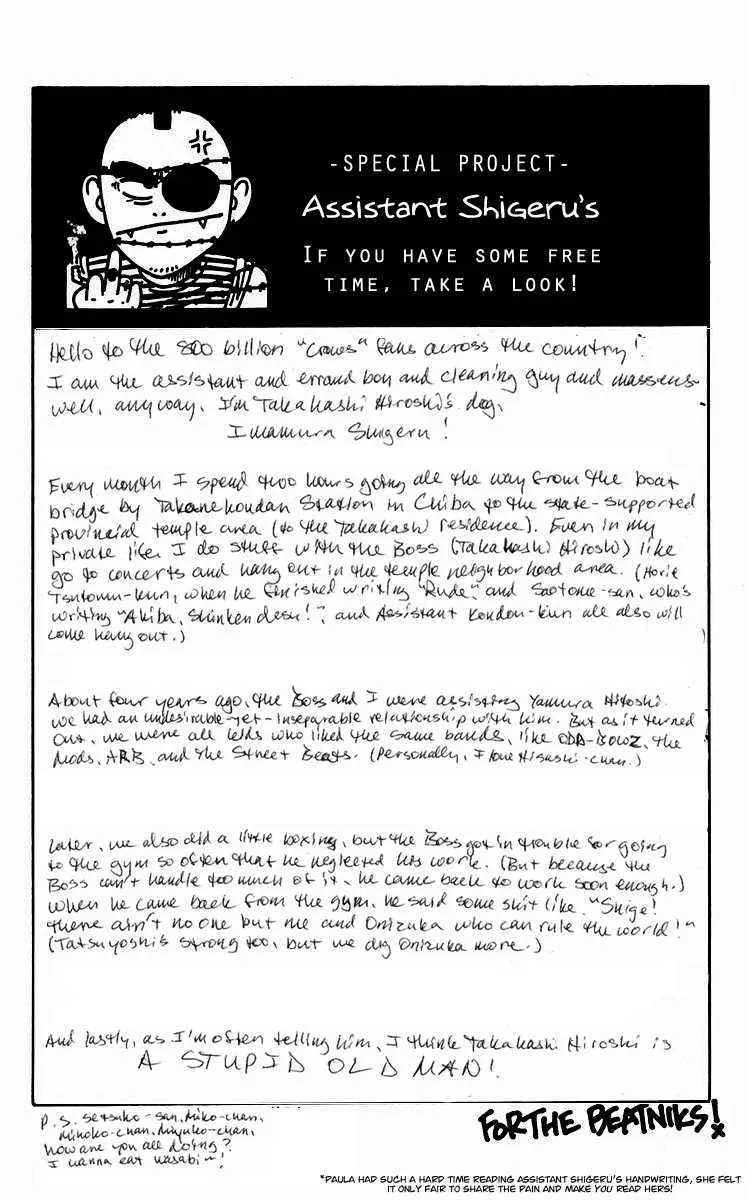 -SPECIAL PROJECT-
Assistant Shigeru's
IF YOU HAVE SOME FREE
TIME, TAKE A LOOK!
Hello to the 800 billion "Crows" fans across the country!
I am the assistant and errand boy and cleaning guy and masseus-
well, anyway, I'm Takahashi Hiroshi's dog,
Imamura Shigeru!
Every month I spend two hours going all the way from the boat
bridge by Takanekoudan Station in Chiba to the state-supported
provincial temple area (to the Takahashi residence). Even in my
private life I do stuff with the Boss (Takahashi Hiroshi) like
go to concerts and hang out in the temple neighborhood area. (Horie
Tsutomu-kun, when he finished writing "Rude", and Saotome-san, who's
writing "Akiba, Shinken desu!", and Assistant Kondou-kun all also will
come hang out.)
About four years ago, the Boss and I were assisting Yamura Hitoshi.
We had an undesirable-yet-inseparable relationship with him. But as it turned
out, we were all kids who liked the same bands, like the
Mods, ARB, and the Street Beats. (Personally, I love Hisashi-chan.)
Later, we also did a little boxing, but the Boss got in trouble for going
to the gym so often that he neglected his work. (But because the
Boss can't handle too much of it, he came back to work soon enough.)
When he came back from the gym, he said some shit like, "Shige!
There ain't no one but me and Onizuka who can rule the world!"
(Tatsuyoshi's strong too, but we dig Onizuka more.)
And lastly, as I'm often telling him, I think Takahashi Hiroshi is
A STUPID OLD MAN!
P.S. Setsuko-san, Miko-chan,
Mihoko-chan, Miyuko-chan,
How are you all doing?
I wanna eat wasabi~!
FOR THE BEATNIKS!
*PAULA HAD SUCH A HARD TIME READING ASSISTANT SHIGERU'S HANDWRITING, SHE FELT
IT ONLY FAIR TO SHARE THE PAIN AND MAKE YOU READ HERS!